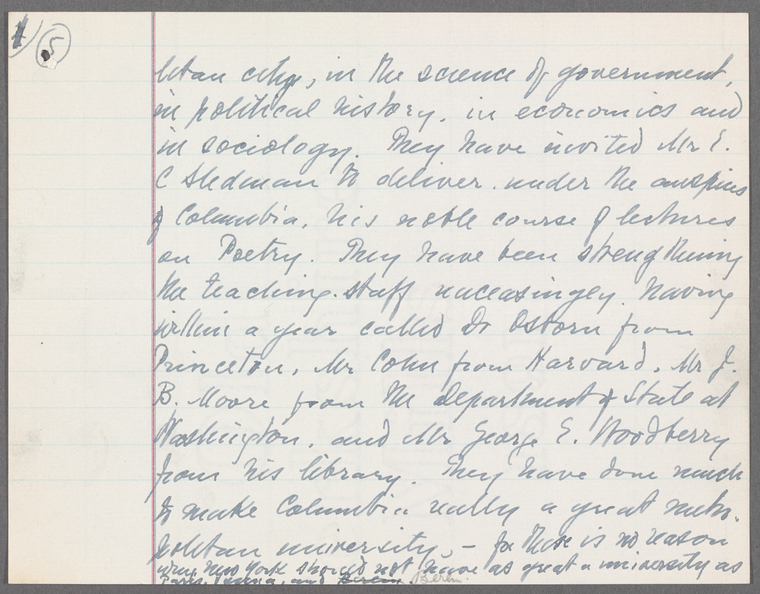 5
litan city, in the science of government,
in political history, in economics and
in sociology. They have invited Mr E.
C Stedman to deliver, under the auspices
of Columbia, his noble course of lectures
on Poetry. They have been strengthening
the teaching-staff unceasingly, having
within a year called Dr Osborn from
Princeton, Mr Cohn from Harvard, Mr J.
B. Moore from the Department of State at
Washington, and Mr George E. Woodberry
from his library. They have done much
to make Columbia really a great metro-
politan university, – for there is no reason
why New York should not have as great a university as
Paris, Vienna, and Berlin. Berlin.